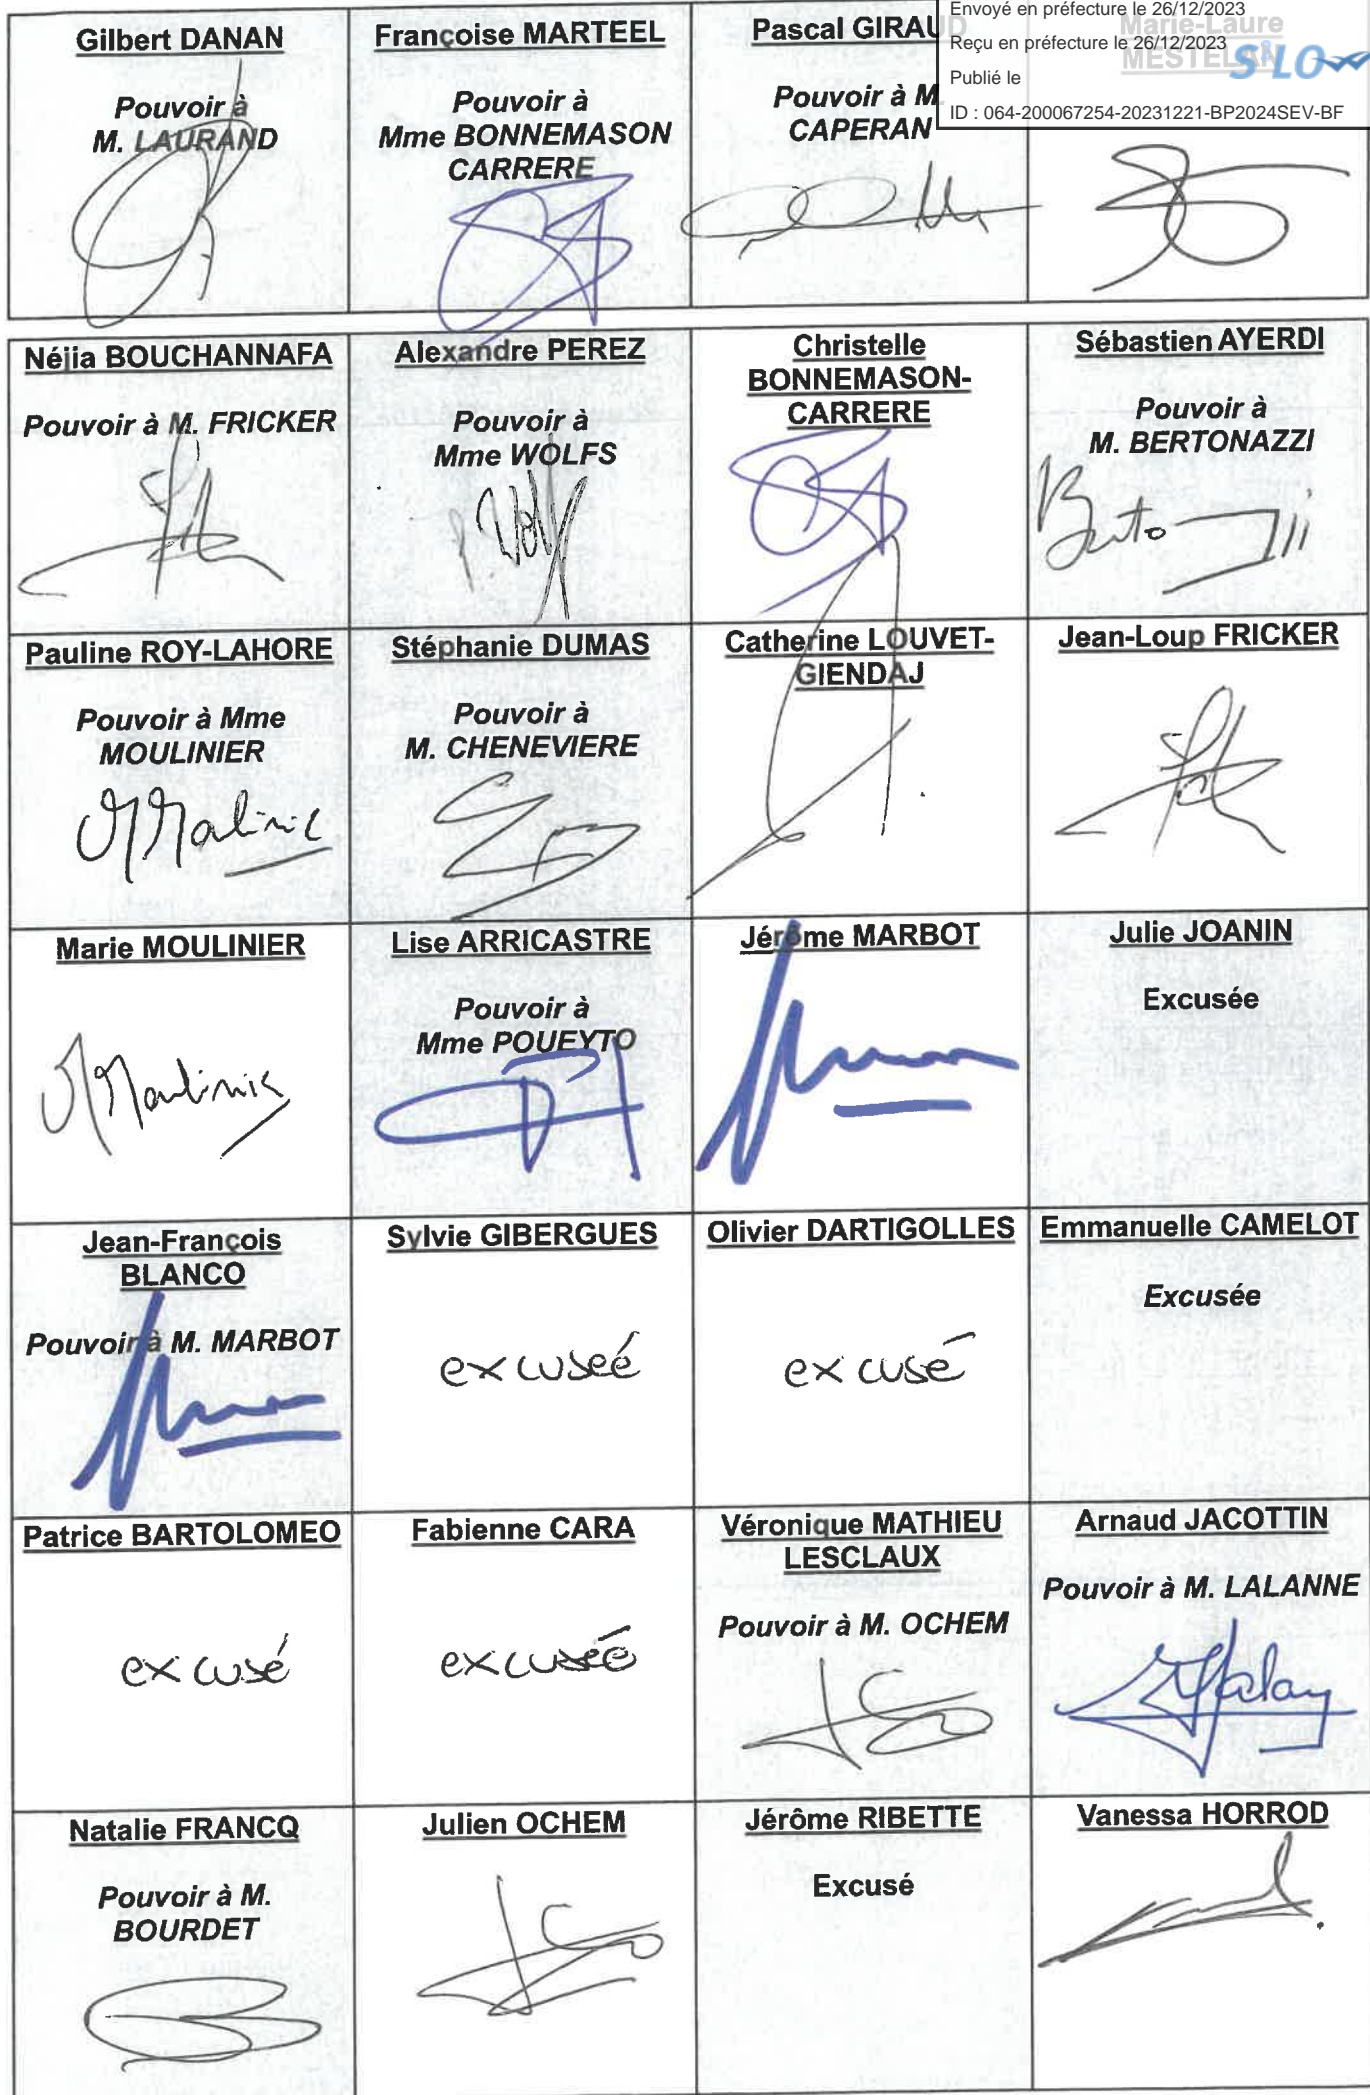 Envoyé en préfecture le 26/12/2023
Reçu en préfecture le 26/12/2023
Publié le
ID : 064-200067254-20231221-BP2024SEV-BF
S²LO
Gilbert DANAN
Pouvoir à
M. LAURAND
Françoise MARTEEL
Pouvoir à
Mme BONNEMASON
CARRERE
Pascal GIRAUD
Pouvoir à M.
CAPERAN
Marie-Laure
MESTELAN
Néjia BOUCHANNAFA
Pouvoir à M. FRICKER
Alexandre PEREZ
Pouvoir à
Mme WOLFS
Christelle
BONNEMASON-
CARRERE
Sébastien AYERDI
Pouvoir à
M. BERTONAZZI
Pauline ROY-LAHORE
Pouvoir à Mme
MOULINIER
Stéphanie DUMAS
Pouvoir à
M. CHENEVIERE
Catherine LOUVET-
GIENDAJ
Jean-Loup FRICKER
Marie MOULINIER
Lise ARRICASTRE
Pouvoir à
Mme POUEYTO
Jérôme MARBOT
Julie JOANIN
Excusée
Jean-François
BLANCO
Pouvoir à M. MARBOT
Sylvie GIBERGUES
excuseé
Olivier DARTIGOLLES
excusé
Emmanuelle CAMELOT
Excusée
Patrice BARTOLOMEO
excusé
Fabienne CARA
excusée
Véronique MATHIEU
LESCLAUX
Pouvoir à M. OCHEM
Arnaud JACOTTIN
Pouvoir à M. LALANNE
Natalie FRANCQ
Pouvoir à M.
BOURDET
Julien OCHEM
Jérôme RIBETTE
Excusé
Vanessa HORROD